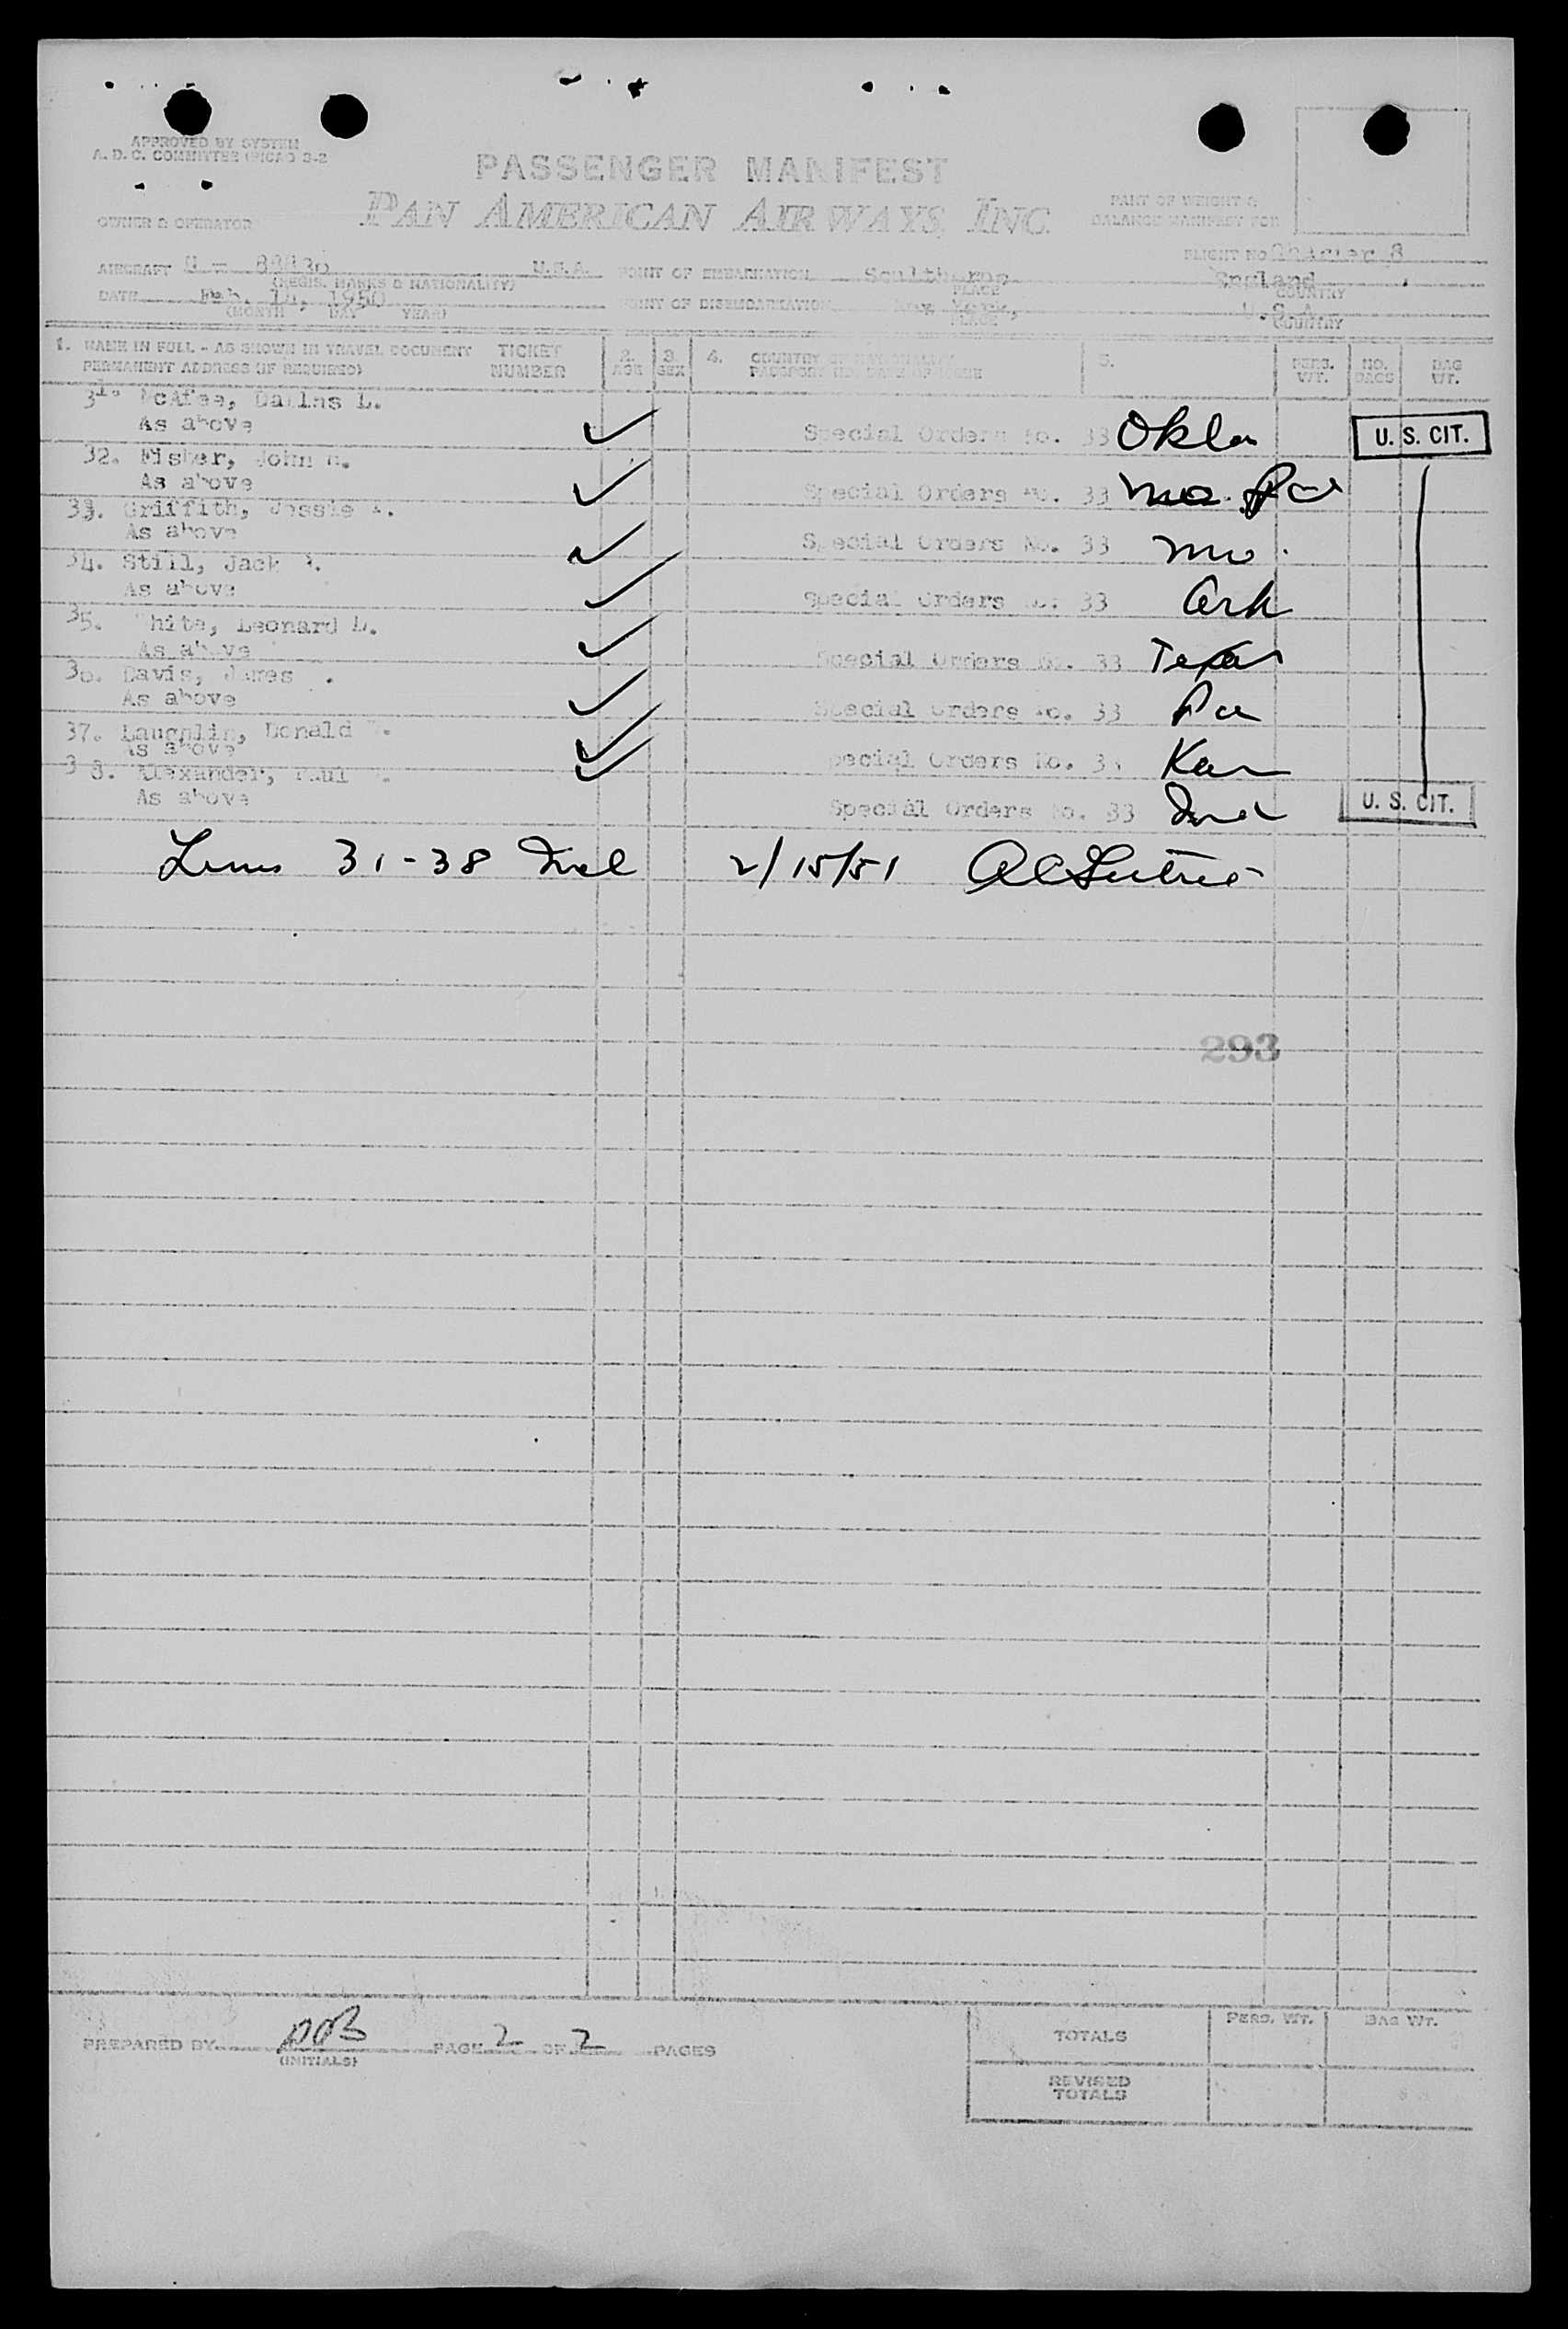 APPROVED BY SYSTEM
A. D. C. COMMITTEE (PICAO 3-2
PASSENGER MANIFEST
PAN AMERICAN AIRWAYS, INC.
OWNER & OPERATOR
PART OF WEIGHT &
BALANCE MANIFEST FOR
FLIGHT NO. Charter 8
AIRCRAFT U.S.A. POINT OF EMBARKATION Sculthorpe England
(REGIS. MARKS & NATIONALITY) PLACE COUNTRY
DATE Feb. 14, 1950 POINT OF DISEMBARKATION New York, U.S.A.
(MONTH DAY YEAR) PLACE COUNTRY
1. NAME IN FULL - AS SHOWN IN TRAVEL DOCUMENT TICKET 2. 3. 4. COUNTRY OF NATIONALITY 5. PERS. NO. BAG
PERMANENT ADDRESS (IF REQUIRED) NUMBER AGE SEX PASSPORT NO. DATE OF ISSUE WT. BAGS WT.
31. McAfee, Dallas L.
As above Special Orders No. 33 Okla U. S. CIT.
32. Fisher, John
As above Special Orders No. 33 mo. Pa
33. Griffith, Jessie
As above Special Orders No. 33 mo.
34. Still, Jack
As above Special Orders No. 33 Ark
35. White, Leonard L.
As above Special Orders No. 33 Texas
36. Davis, James
As above Special Orders No. 33 Pa
37. Laughlin, Donald
As above Special Orders No. 33 Kan
38. Alexander, Paul
As above Special Orders No. 33 Ind U. S. CIT.
Lines 31-38 Incl 2/15/51
293
PREPARED BY PAGE 2 OF 2 PAGES
(INITIALS)
TOTALS PERS. WT. BAG WT.
REVISED
TOTALS